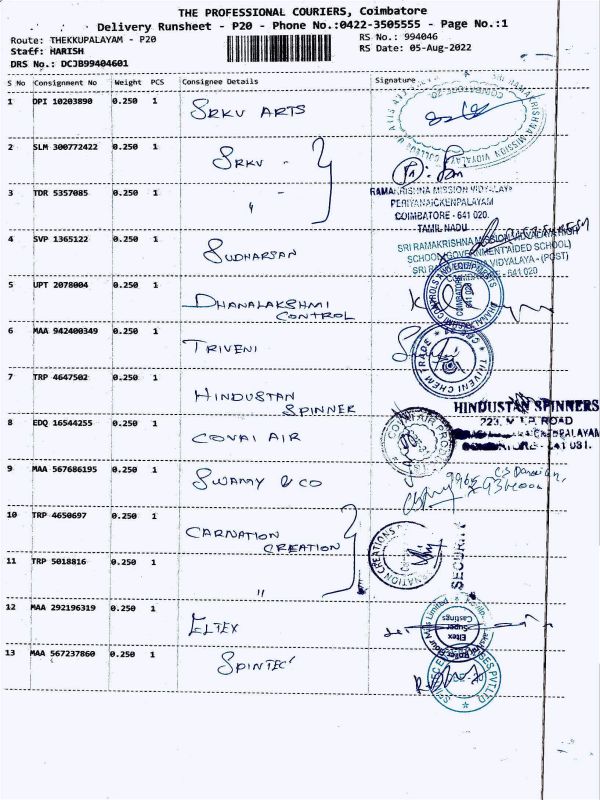 THE PROFESSIONAL COURIERS, Coimbatore
Delivery Runsheet - P20 - Phone No.:0422-3505555 - Page No.:1
Route: THEKKUPALAYAM - P20 RS No.: 994046
Staff: HARISH RS Date: 05-Aug-2022
DRS No.: DCJB99404601
S No Consignment No Weight PCS Consignee Details Signature
1 DPI 10203890 0.250 1 SRKV ARTS
2 SLM 300772422 0.250 1 SRKV -
3 TDR 5357085 0.250 1 " -
RAMAKRISHNA MISSION VIDYALAYA
PERIYANAICKENPALAYAM
COIMBATORE - 641 020.
TAMIL NADU
4 SVP 1365122 0.250 1 SUDHARSAN
SRI RAMAKRISHNA MISSION VIDYALAYA HIGH
SCHOOL (GOVERNMENT AIDED SCHOOL)
SRI RAMAKRISHNA VIDYALAYA - (POST)
COIMBATORE - 641 020
5 UPT 2078004 0.250 1 DHANALAKSHMI
CONTROL
DHANALAKSHMI CONTROLS AND EQUIPMENTS
COIMBATORE
641 020
6 MAA 942400349 0.250 1 TRIVENI
TRIVENI CHEM TRADE
7 TRP 4647502 0.250 1 HINDUSTAN
SPINNER
HINDUSTAN SPINNERS
ROAD
8 EDQ 16544255 0.250 1 COVAI AIR
9 MAA 567686195 0.250 1 SWAMY & CO
10 TRP 4650697 0.250 1 CARNATION
CREATION
CARNATION CREATIONS
SECURITY
11 TRP 5018816 0.250 1 "
12 MAA 292196319 0.250 1 ELTEX
Eltex
Super
Castings
13 MAA 567237860 0.250 1 SPINTEC